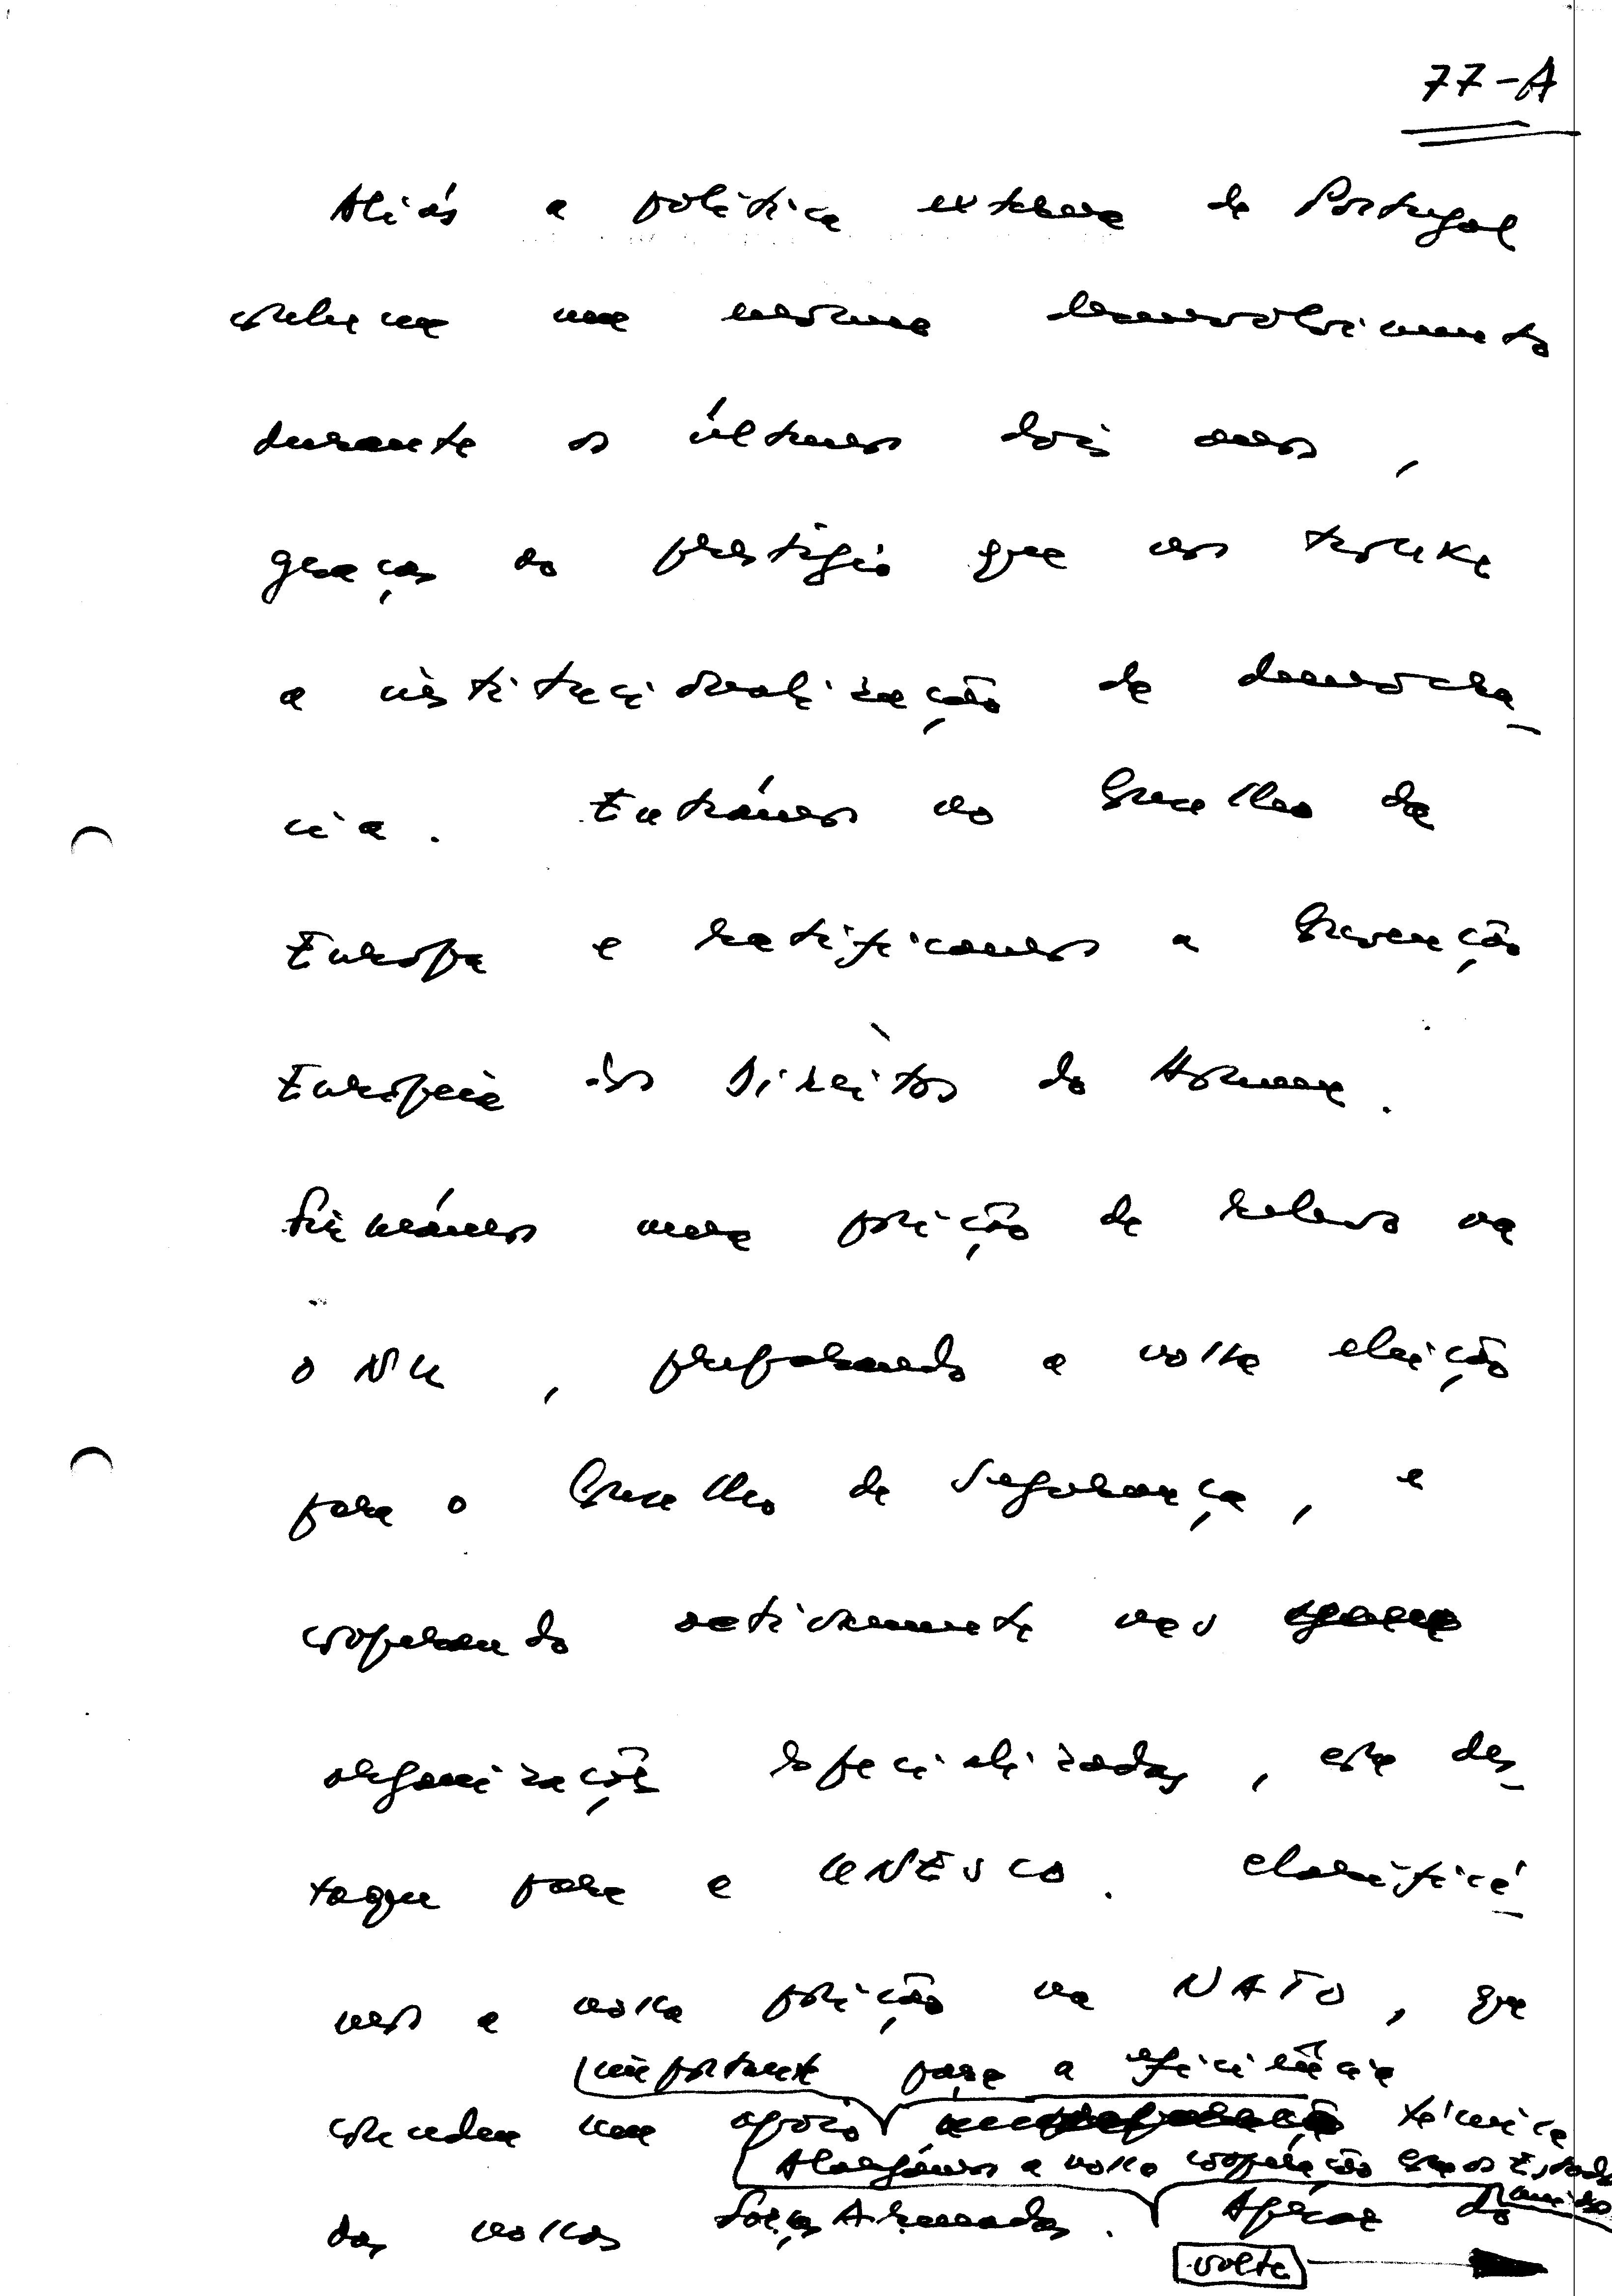 77-A
Aliás a política externa de Portugal
conheceu um enorme desenvolvimento
durante os últimos dois anos,
graças ao prestígio que nos trouxe
a institucionalização da democra-
cia. Entrámos no Conselho da
Europa e ratificamos a Convenção
Europeia dos Direitos do Homem.
Firmámos uma posição de relevo na
ONU, preparando a nossa eleição
para o Conselho de Segurança, e
cooperando activamente nas
organizações especializadas, com des-
taque para a UNESCO. Clarificá-
mos a nossa posição na NATO, que
importante para a eficiência
concedeu um apoio técnica
Alargámos a nossa cooperação com os Estados
Unidos
das nossas Forças Armadas. Apesar do
volte